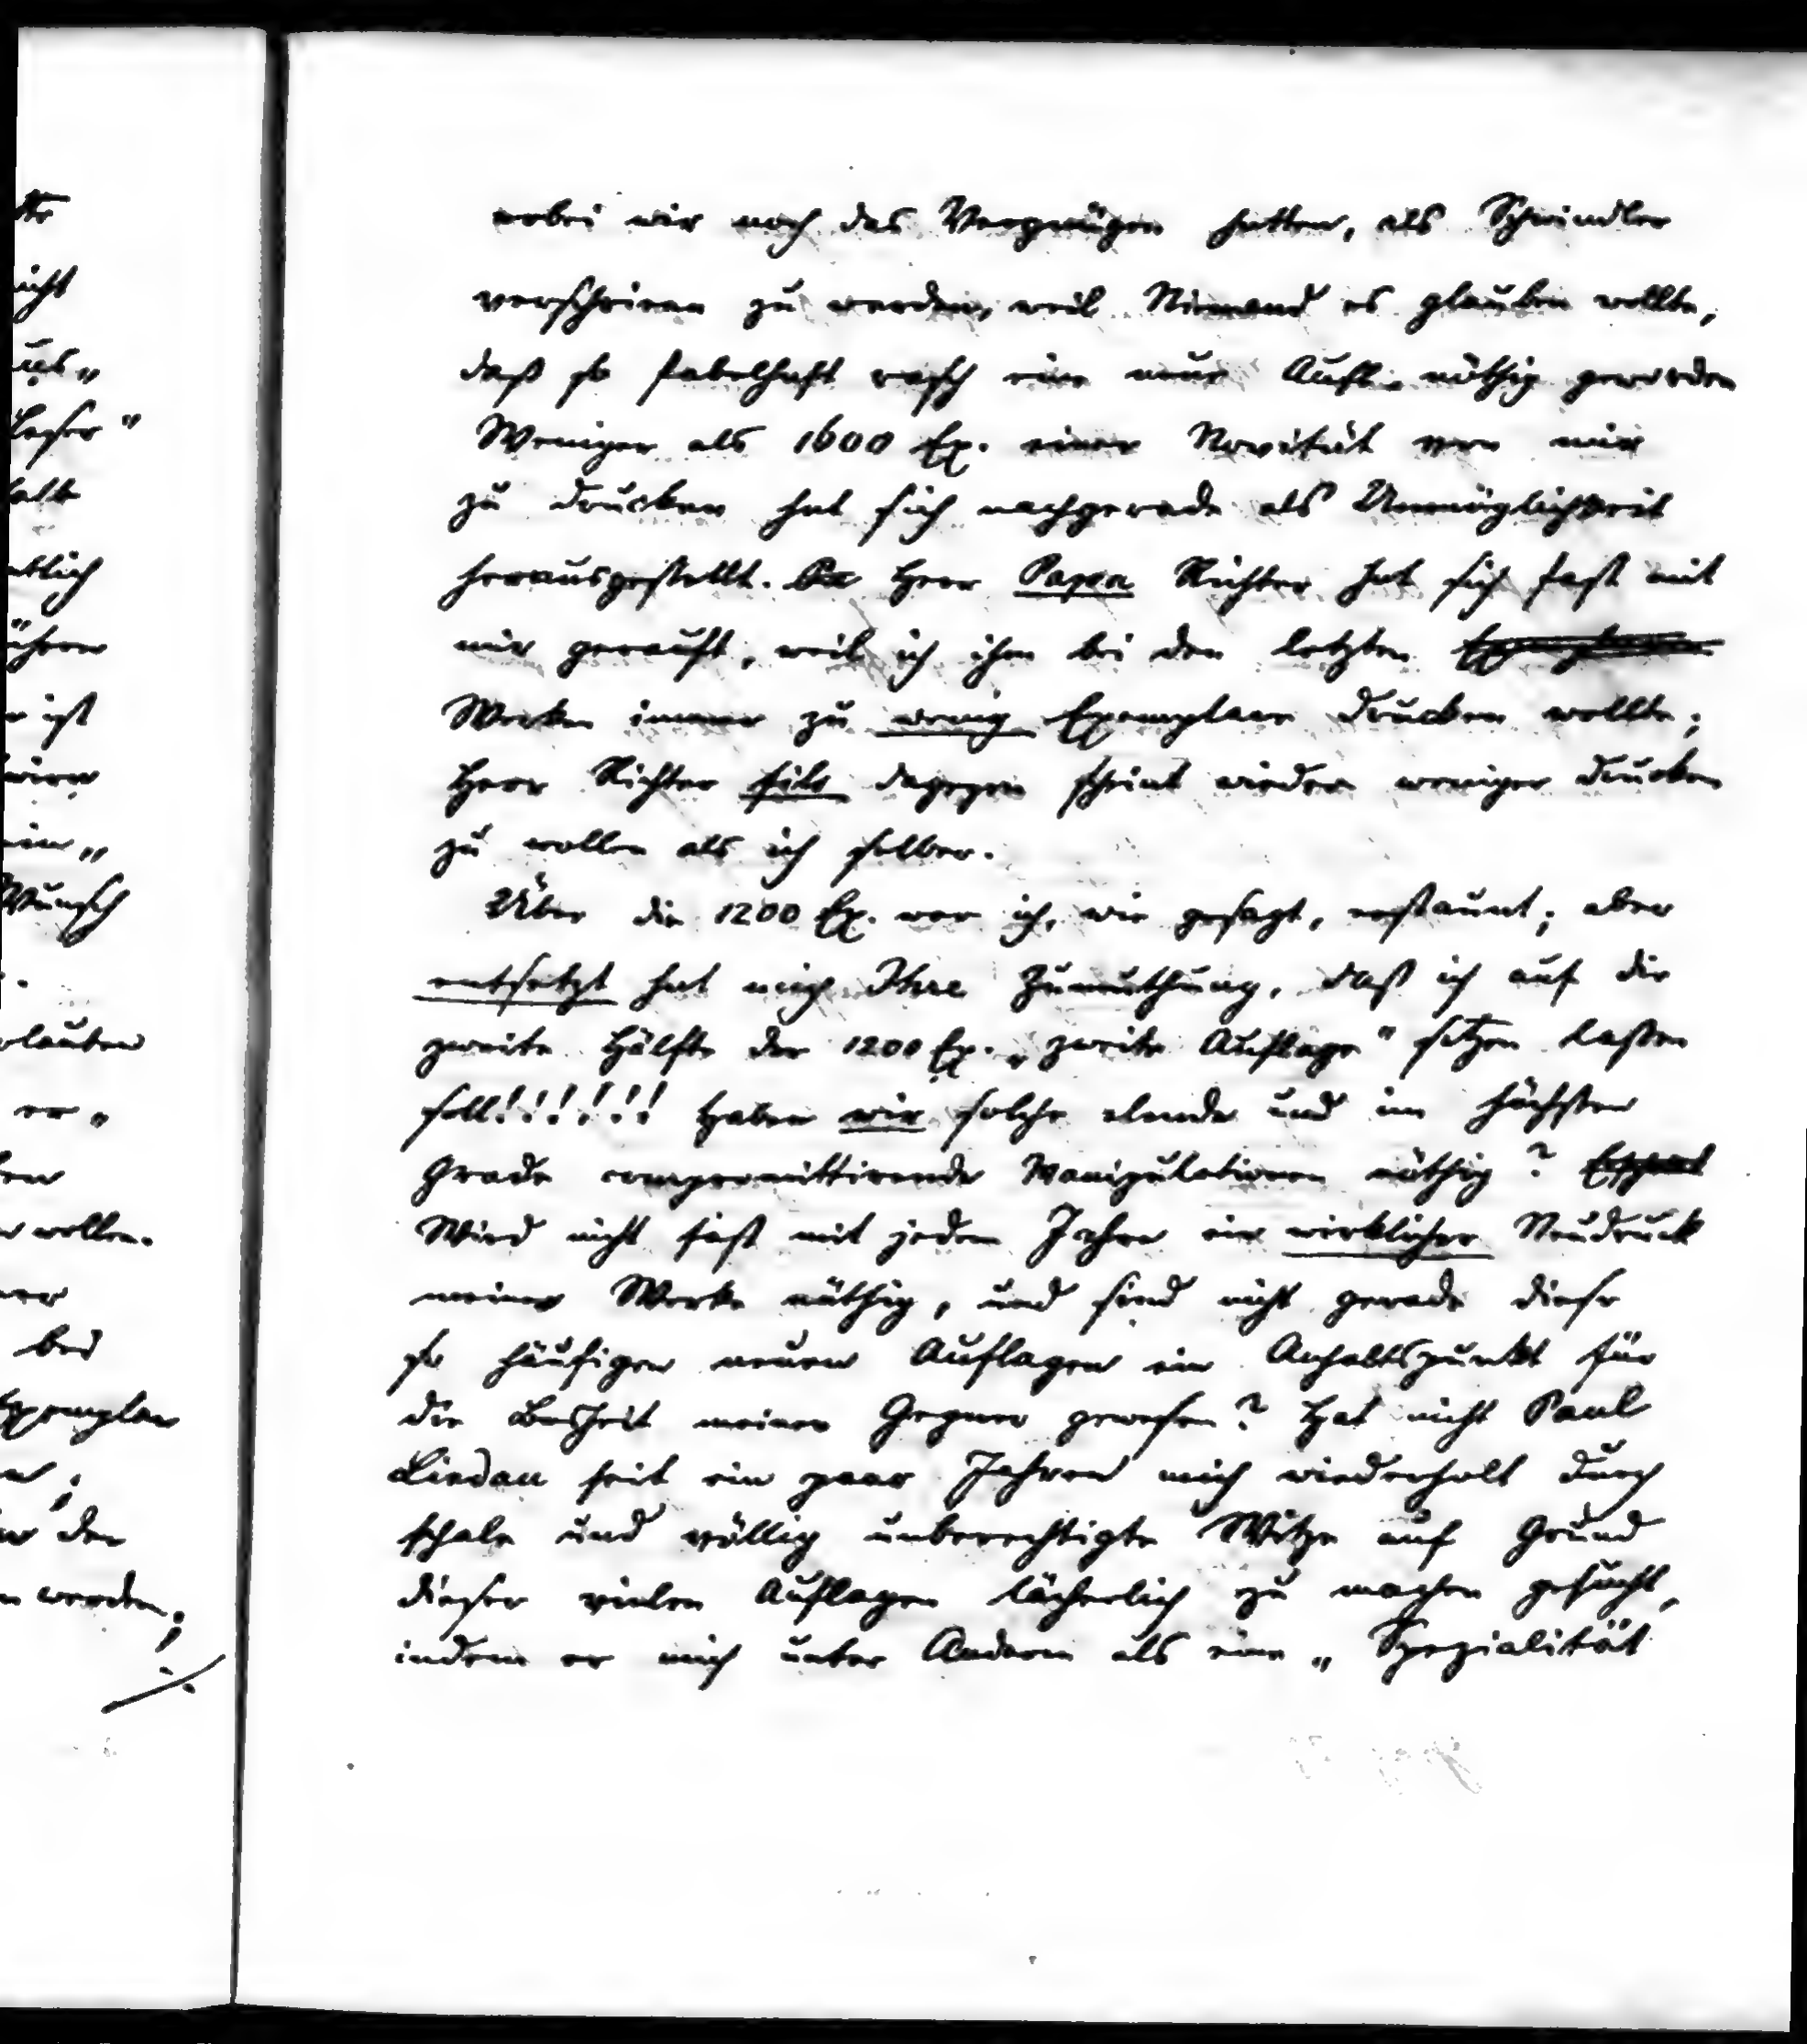 wobei wir noch das Vergnügen hatten, als Schwindler
verschrieen zu werden, weil Niemand es glauben wollte,
daß so fabelhaft rasch eine neue Aufl. nöthig geworden
Weniger als 1600 Ex. einer Novität von mir
zu drucken hat sich nachgerade als Unmöglichkeit
herausgestellt. Herr Papa Richter hat sich fast mit
mir gerauft, weil ich ihm bei den letzten
Werken immer zu wenig Exemplare drucken wollte;
Herr Richter fils dagegen scheint wieder weniger drucken
zu wollen als ich selber.
Über die 1200 Ex. war ich, wie gesagt, erstaunt; aber
entsetzt hat mich Ihre Zumuthung, daß ich auf die
zweite Hälfte der 1200 Ex. „zweite Auflage" setzen lassen
soll!!!!!! Haben wir solche elende und im höchsten
Grade compromittirende Manipulationen nöthig?
Wird nicht fast mit jedem Jahre ein wirklicher Neudruck
meiner Werke nöthig, und sind nicht gerade diese
so häufigen neuen Auflagen ein Anhaltspunkt für
die Bosheit meiner Gegner gewesen? Hat nicht Paul
Lindau seit ein paar Jahren mich wiederholt durch
schale und völlig unberechtigte Witze auf Grund
dieser vielen Auflagen lächerlich zu machen gesucht,
indem er mich unter Anderm als eine „Spezialität
icht
ist
Wunsch
glauben
wollen.
bei
Exemplar
den
werden;